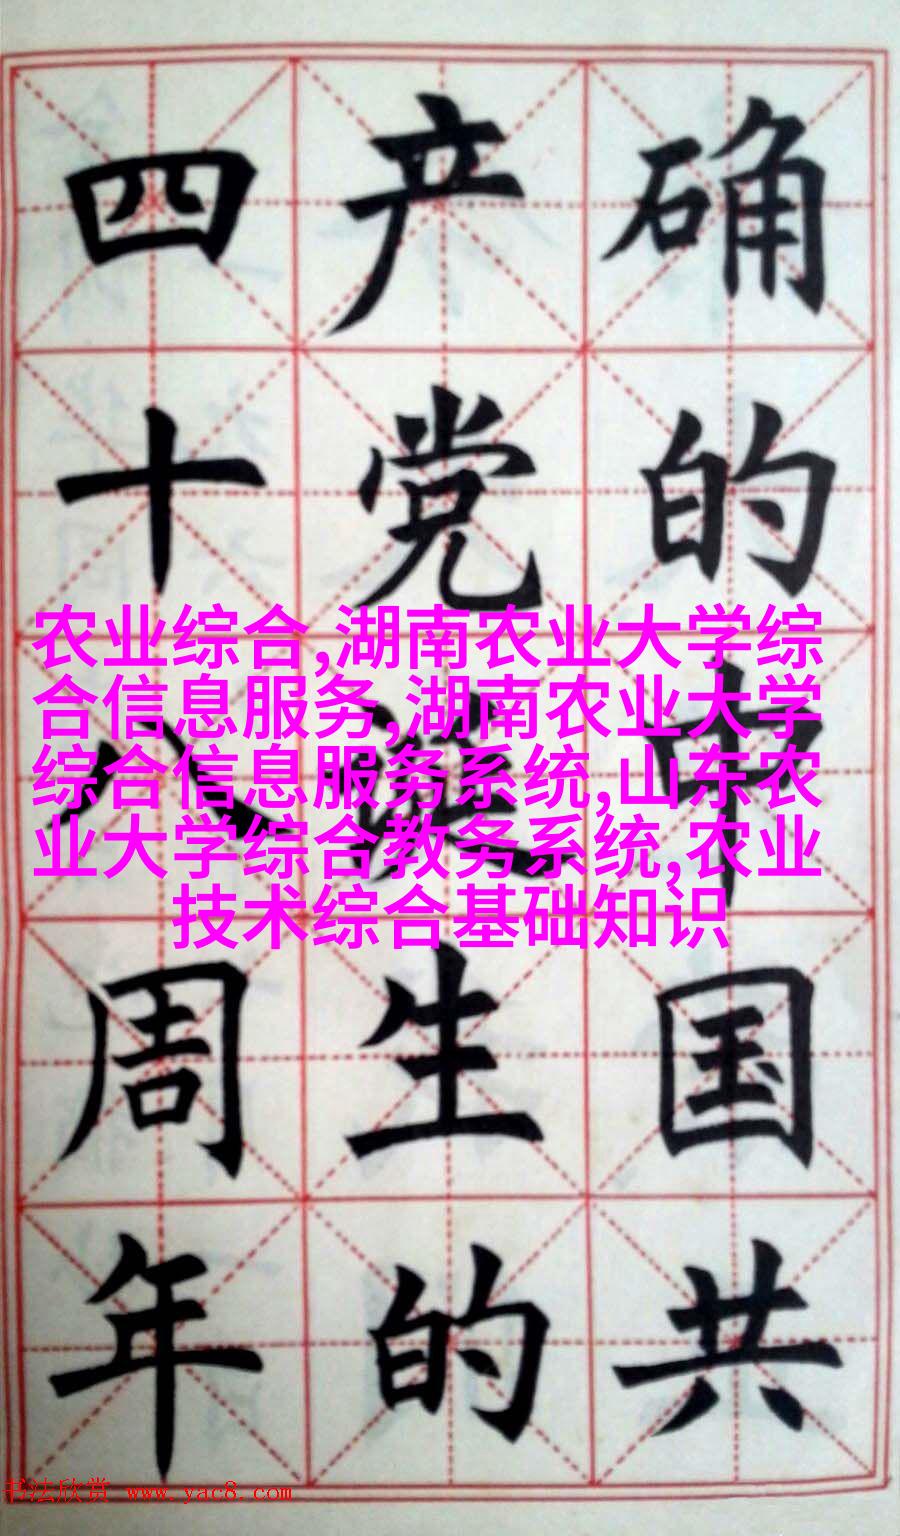 确的中国共
产党诞生的
四十八周年
农业综合,湖南农业大学综
合信息服务,湖南农业大学
综合信息服务系统,山东农
业大学综合教务系统,农业
技术综合基础知识
书法欣赏 www.yac8.com